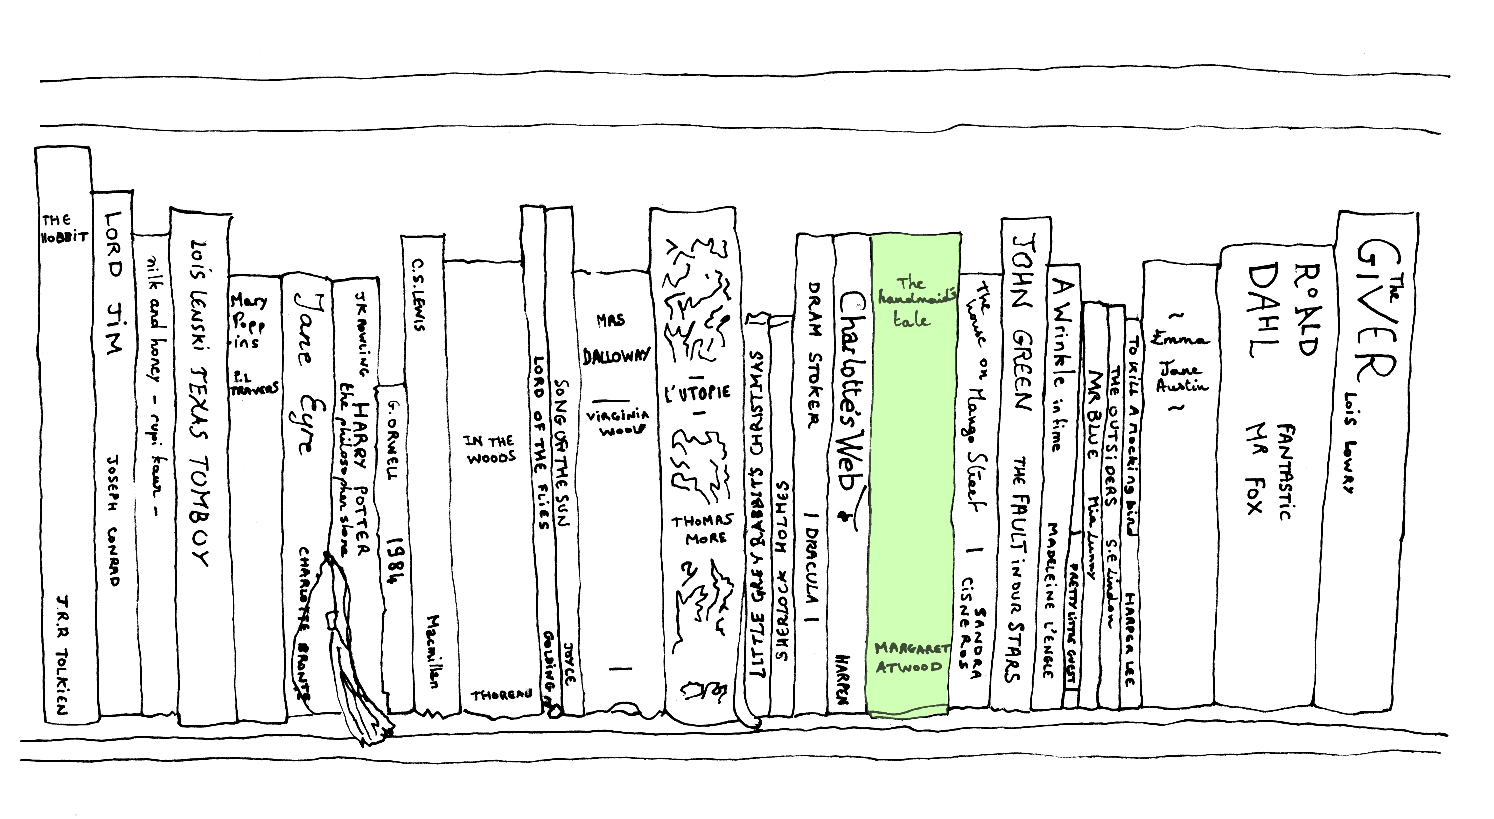 THE
HOBBIT
J.R.R TOLKIEN
LORD JIM
JOSEPH CONRAD
milk and honey - rupi kaur -
LOIS LENSKI TEXAS TOMBOY
Mary
Popp
-ins
P.L
TRAVERS
Jane Eyre
CHARLOTTE BRONTE
JK ROWLING HARRY POTTER
the philosopher stone
G.ORWELL 1984
C.S.LEWIS
Macmillan
IN THE
WOODS
THOREAU
LORD OF THE FLIES
GOLDING
SONG OF THE SUN
JOYCE
MRS
DALLOWAY
VIRGINIA
WOOLF
L'UTOPIE
THOMAS
MORE
LITTLE GREY RABBIT'S CHRISTMAS
SHERLOCK HOLMES
DRAM STOKER | DRACULA |
Charlotte's Web
HARPER
The
handmaid's
tale
MARGARET
ATWOOD
The house on Mango Street |
SANDRA
CISNEROS
JOHN GREEN THE FAULT IN OUR STARS
A Wrinkle in time
MADELEINE L'ENGLE
PRETTY LITTLE GUEST
MR BLUE
THE OUTSIDERS S.E Lindon
TO KILL A mocking bird HARPER LEE
~
Emma
Jane
Austin
~
ROALD
DAHL
FANTASTIC
MR FOX
The
GIVER
LOIS LOWRY